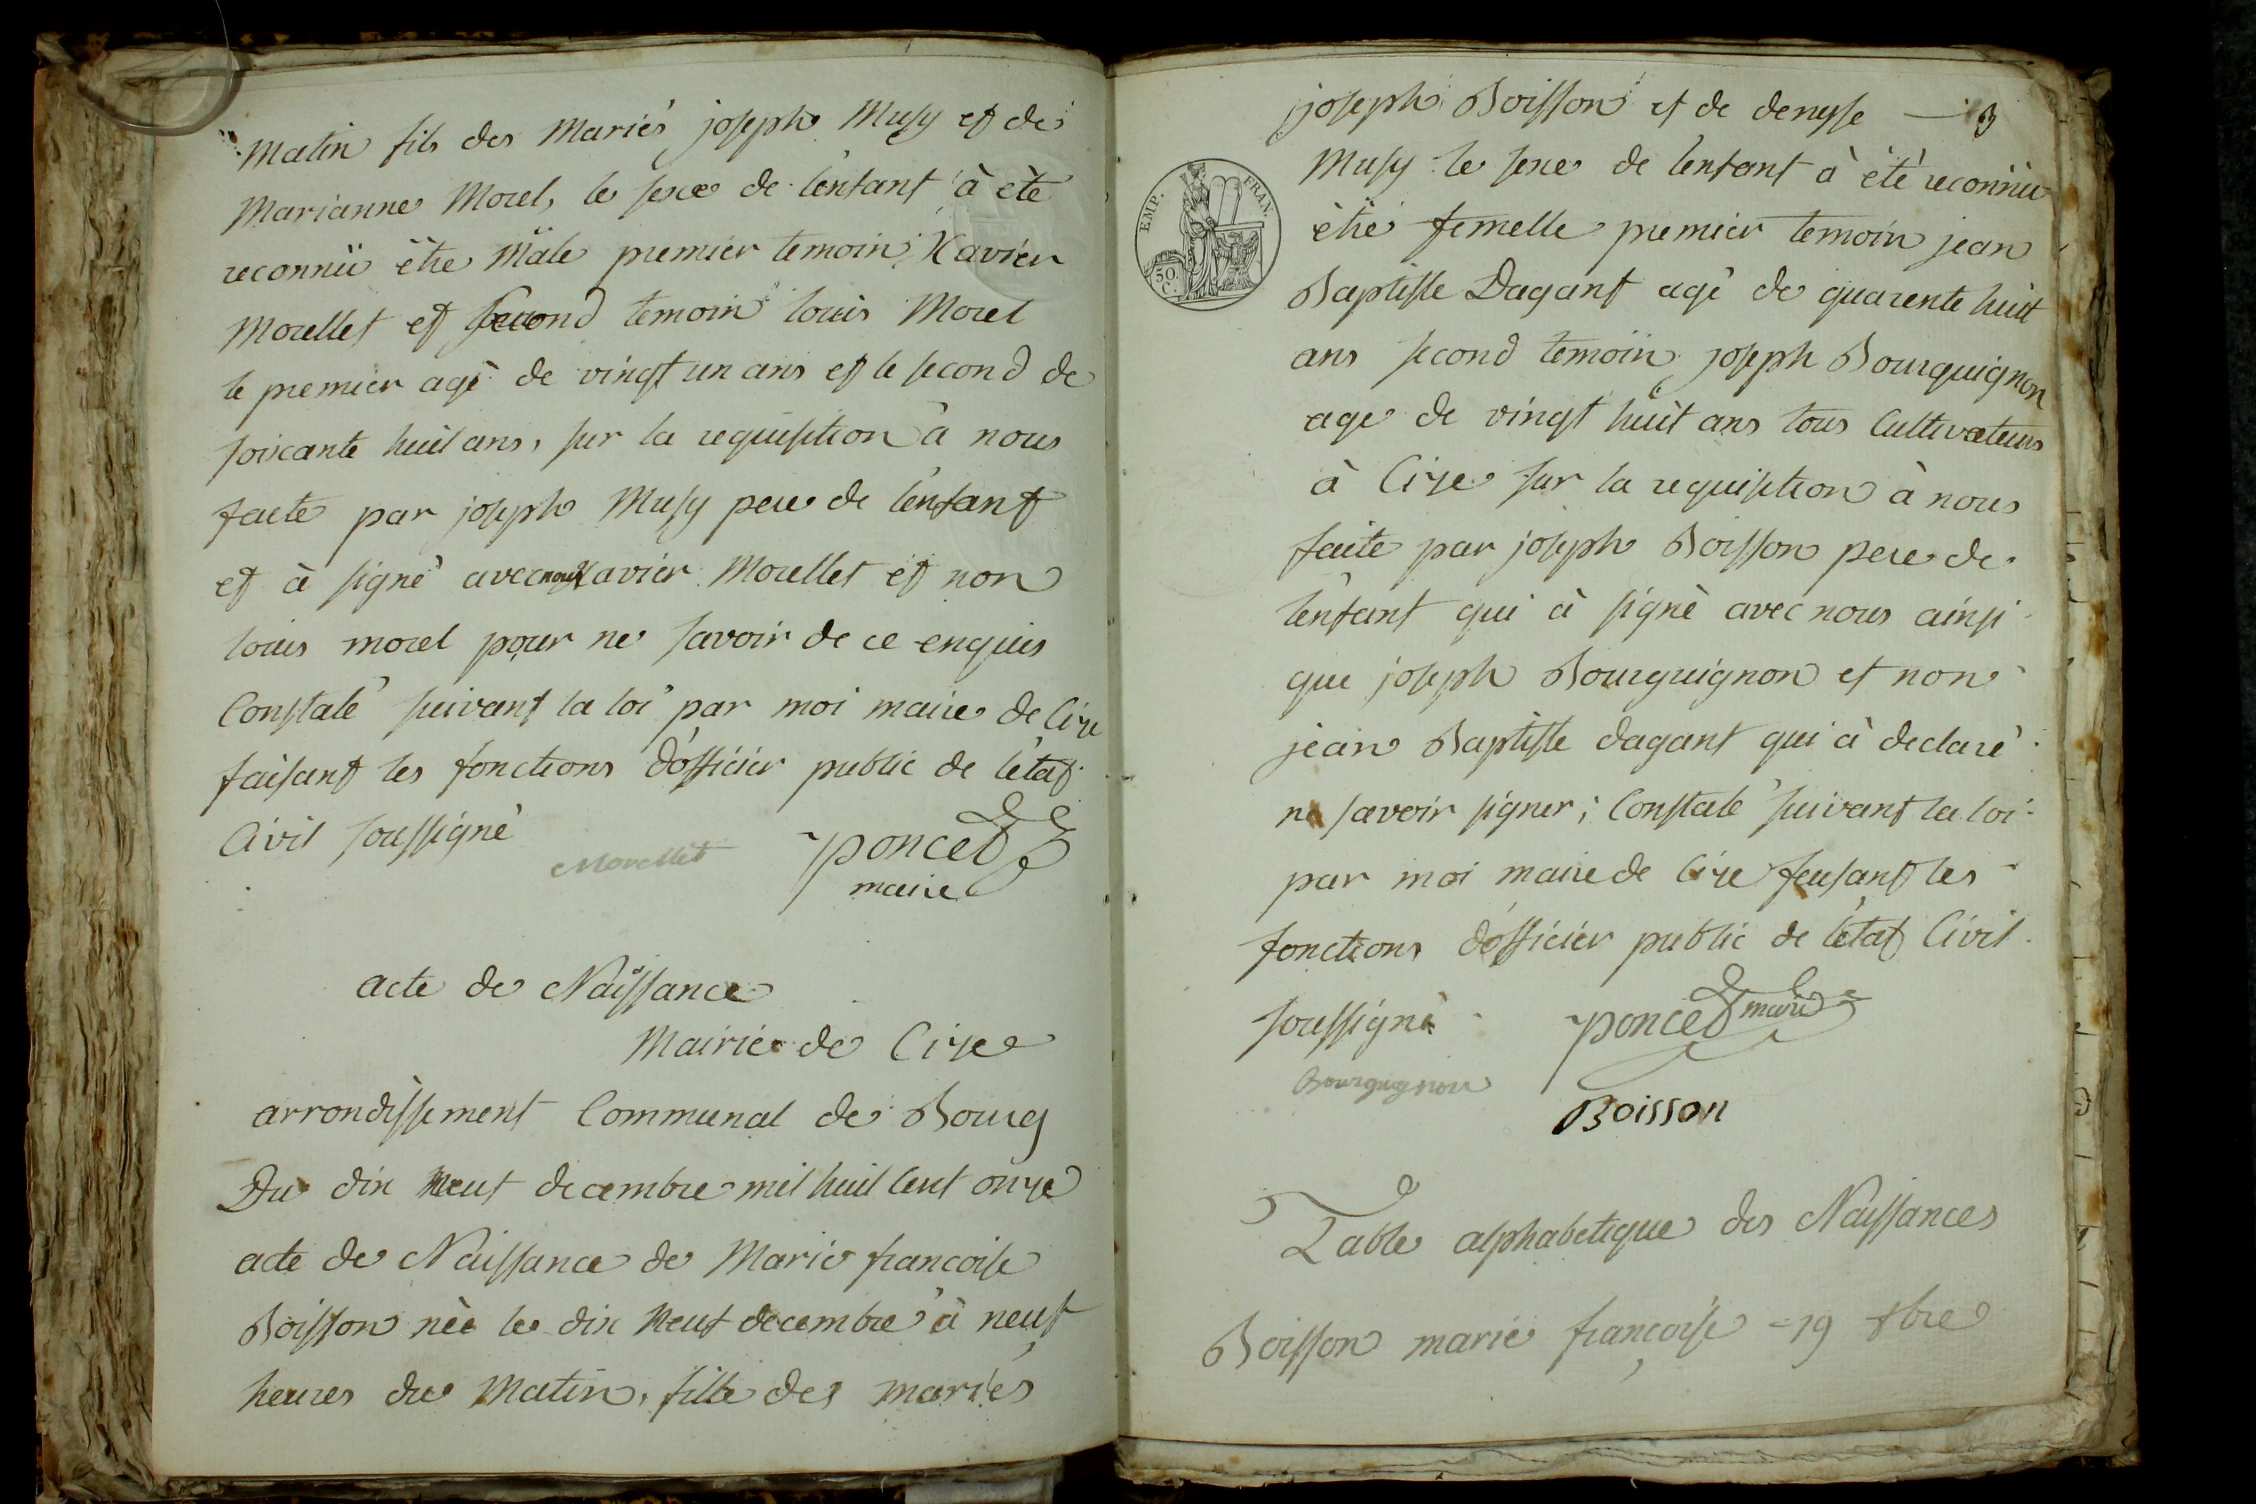 Matin fils des Mariés joseph Musy et de
Marianne Morel, le sexe de l'enfant à ète
reconnü ëtre Mäle premier temoin Xavier
Morellet et second temoin louis Morel
le premier agè de vingt un ans et le second de
soixante huit ans, sur la requisition à nous
faite par joseph Musy pere de l'enfant
et à signé avec nous Xavier Morellet et non
louis morel pour ne savoir de ce enquis
Constaté suivant la loi par moi maire de Cize
faisant les fonctions d'officier public de l'état
Civil soussignè
Morellet
poncet
maire
acte de Naissance
Mairie de Cize
arrondissement Communal de Bourg
Du dix Neuf decembre mil huit Cent onze
acte de Naissance de Marie francoise
Boisson nèe le dix Neuf decembre à neuf
heures du Matin, fille des mariés
joseph Boisson et de denysse — 3
EMP. FRAN.
50.
C.
Musy le sexe de l'enfant à étè reconnü
être femelle premier temoin jean
Baptiste Dagant agè de quarente huit
ans second temoin joseph Bourquignon
age de vingt huit ans tous Cultivateurs
à Cize sur la requisition à nous
faite par joseph Boisson pere de
l'enfant qui à signè avec nous ainsi
que joseph Bourguignon et non
jean Baptiste dagant qui à declaré
ne savoir signer; Constaté suivant la loi
par moi maire de Cize feusant les
fonctions d'officier public de l'état Civil
soussignè
poncet maire
Bourguignon
Boisson
Table alphabetique des Naissances
Boisson marie françoise = 19 xbre